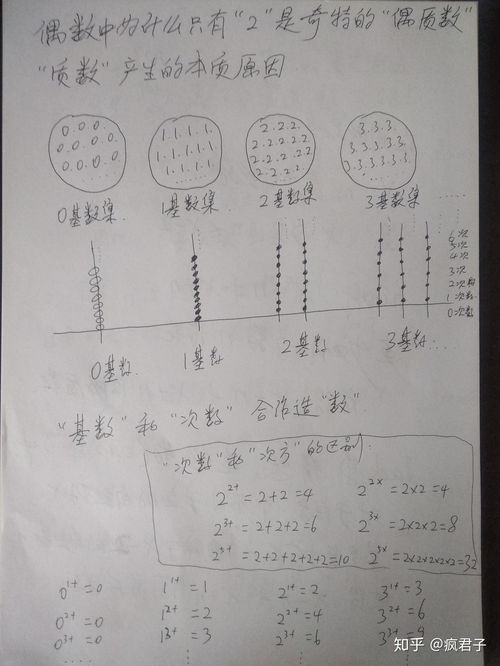 偶数中为什么只有"2"是奇特的"偶质数"
"质数"产生的本质原因
0.0.0.
0.0.0.0.
0.0.0.0.
1.1.1.1.
1.1.1.1.1.
1.1.1.1.
2.2.2.
2.2.2.2.2.
2.2.2.2.2.2
2.2.2.2.
3.3.3.
3.3.3.3.
0.3.3.3.3.3.
3.3.3.
0基数集.
1基数集.
2基数集
3基数集
5次
4次
3次
2次
1次数
0次数
0基数.
1基数
2基数
3基数.....
"基数"和"次数"合作造"数".
"次数"和"次方"的区别:
2²⁺=2+2=4 2²ˣ=2×2=4
2³⁺=2+2+2=6 2³ˣ=2×2×2=8
2⁵⁺=2+2+2+2+2=10 2⁵ˣ=2×2×2×2×2=32
0¹⁺=0 1¹⁺=1 2¹⁺=2 3¹⁺=3
0²⁺=0 1²⁺=2 2²⁺=4 3²⁺=6
0³⁺=0 1³⁺=3 2³⁺=6 3³⁺=9
知乎 @疯君子